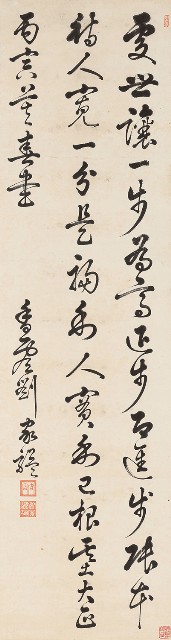 處世讓一步為高退步即進步張本
待人寬一分是福利人實利己根基大正
丙寅莫春書
劉家